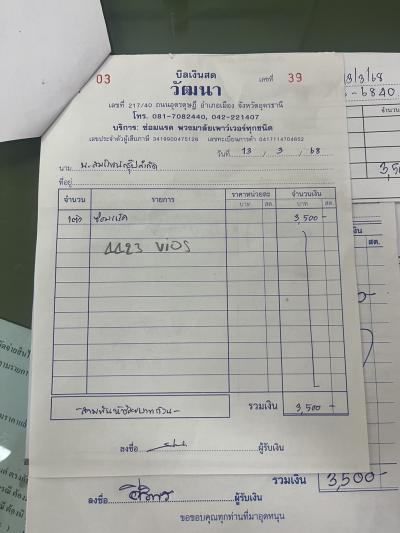 03 บิลเงินสด เลขที่ 39
วัฒนา
เลขที่ 217/40 ถนนอุดรดุษฎี อำเภอเมือง จังหวัดอุดรธานี
โทร. 081-7082440, 042-221407
บริการ: ซ่อมแรค พวงมาลัยเพาว์เวอร์ทุกชนิด
เลขประจำตัวผู้เสียภาษี 3419900475126 เลขทะเบียนการค้า 0417114704652
วันที่ 13 / 3 / 68
นาม
ที่อยู่
จำนวน รายการ ราคาหน่วยละ จำนวนเงิน
บาท สต. บาท สต.
1ตัว ซ่อมแร็ค 3,500 -
1123 VIOS
-สามพันห้าร้อยบาทถ้วน- รวมเงิน 3,500 -
ลงชื่อ ผู้รับเงิน
3/3/68
-6840
สต.
รวมเงิน 3,500 -
ลงชื่อ ผู้รับเงิน
ขอขอบคุณทุกท่านที่มาอุดหนุน